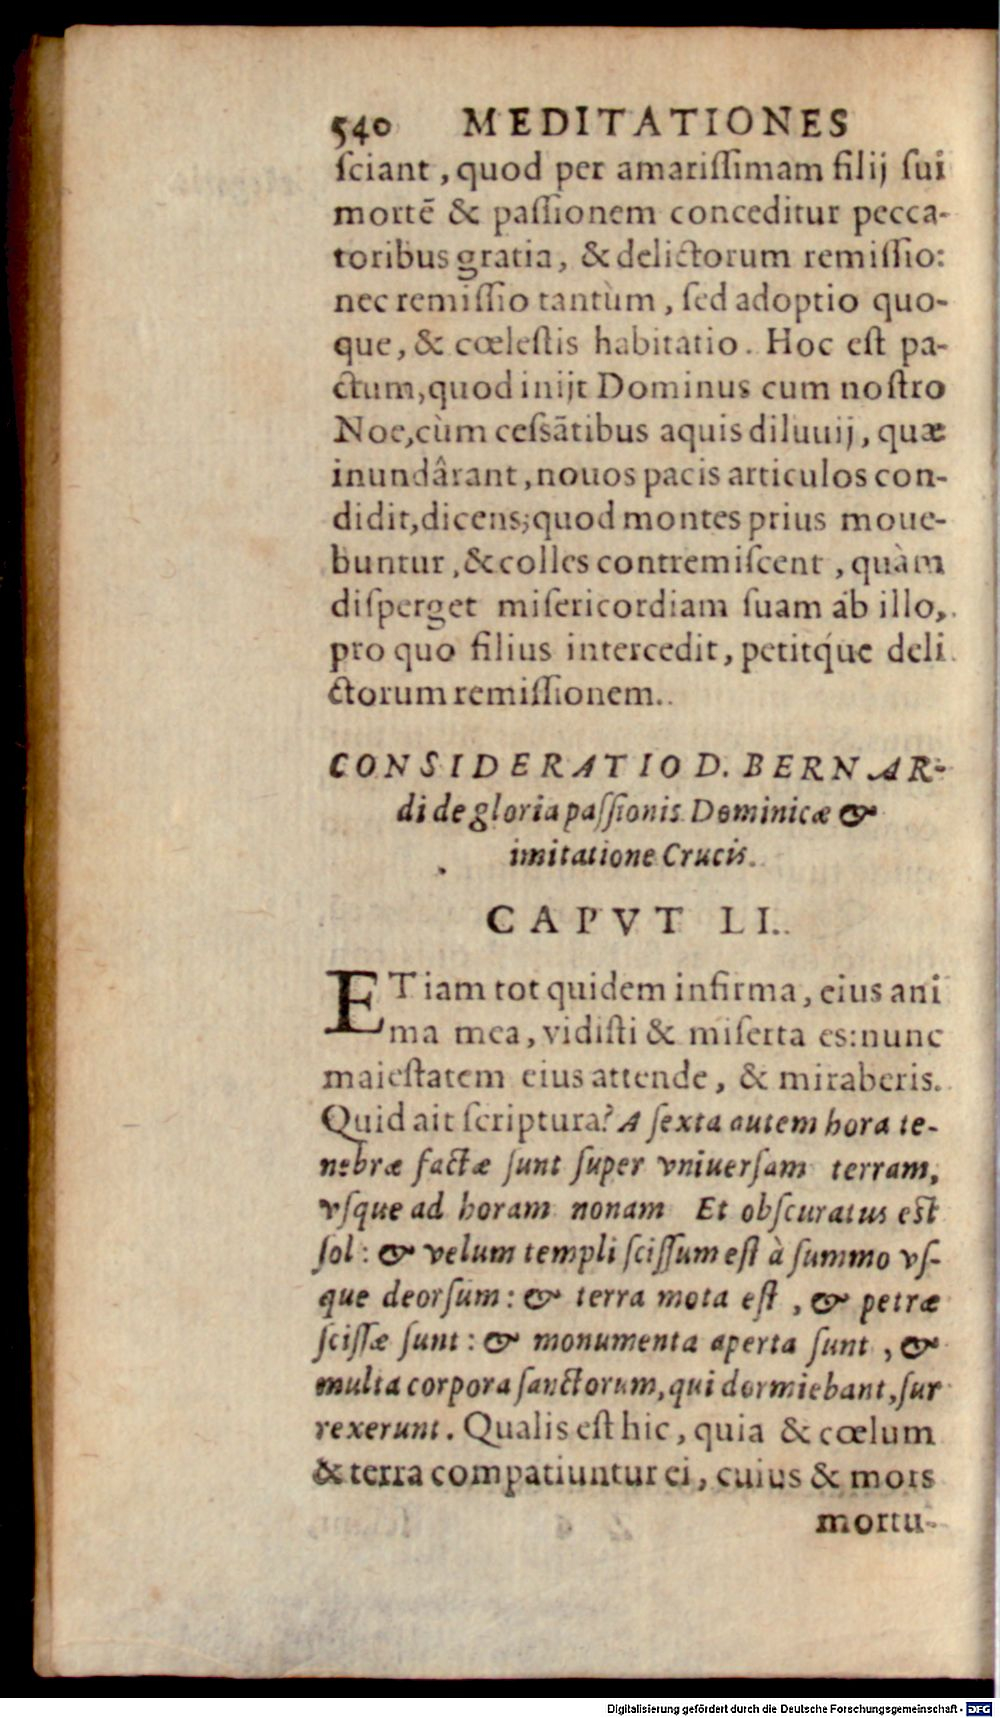 540 MEDITATIONES
ſciant, quod per amariſſimam filij ſui
mortē & paſſionem conceditur pecca-
toribus gratia, & delictorum remiſſio:
nec remiſſio tantùm, ſed adoptio quo-
que, & cœleſtis habitatio. Hoc eſt pa-
ctum, quod inijt Dominus cum noſtro
Noe, cùm ceſsātibus aquis diluuij, quæ
inundârant, nouos pacis articulos con-
didit, dicens; quod montes prius moue-
buntur, & colles contremiſcent, quàm
diſperget miſericordiam ſuam ab illo,
pro quo filius intercedit, petitq́ue deli
ctorum remiſſionem.
CONSIDERATIO D. BERNAR-
di de gloria paſſionis Dominicæ &
imitatione Crucis.
CAPVT LI.
ETiam tot quidem infirma, eius ani
ma mea, vidiſti & miſerta es: nunc
maieſtatem eius attende, & miraberis.
Quid ait ſcriptura? A ſexta autem hora te-
nebræ factæ ſunt ſuper vniuerſam terram,
vſque ad horam nonam Et obſcuratus eſt
ſol: & velum templi ſciſſum eſt à ſummo vſ-
que deorſum: & terra mota eſt, & petræ
ſciſſæ ſunt: & monumenta aperta ſunt, &
multa corpora ſanctorum, qui dormiebant, ſur
rexerunt. Qualis eſt hic, quia & cœlum
& terra compatiuntur ei, cuius & mors
mortu-
Digitalisierung gefördert durch die Deutsche Forschungsgemeinschaft - DFG